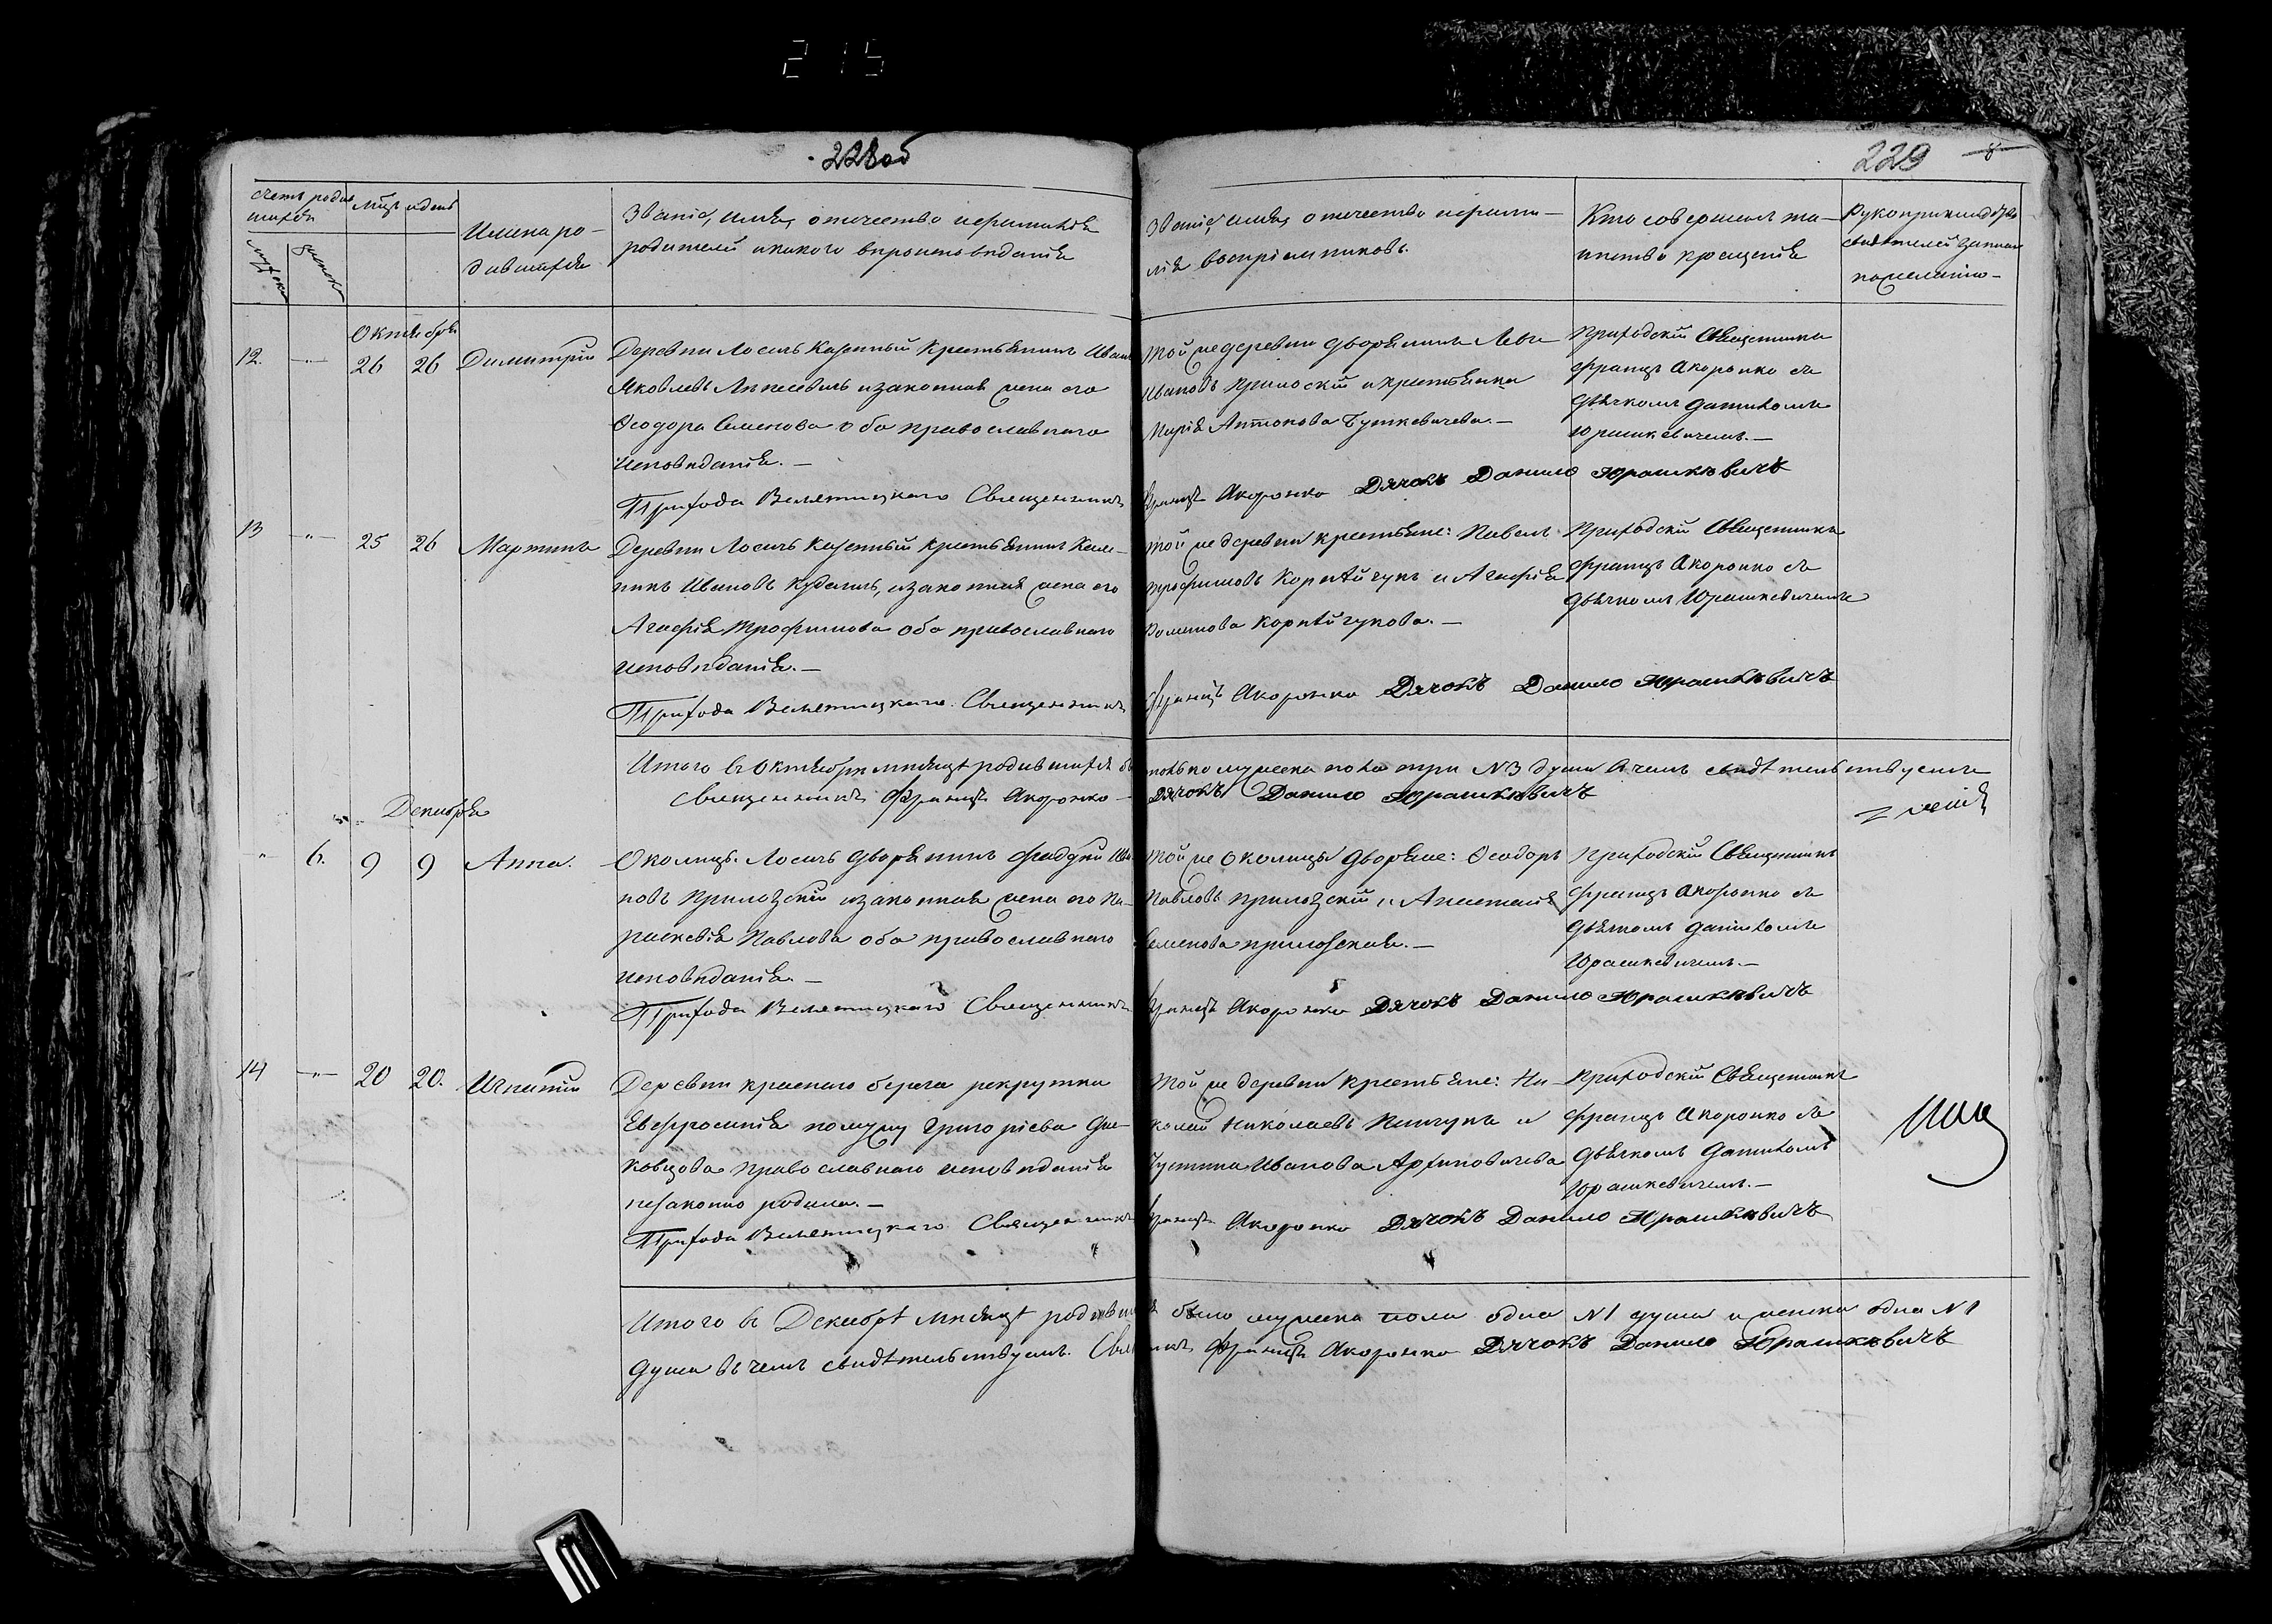 215
228об
229
Счетъ родив
шихся
мужск
женск
Мцъ и день
Имена ро-
дившихся
Званіе, имя, отчество и фамилія
родителей и какого вѣроисповѣданія
Званіе, имя, отчество и фами-
лія воспріемниковъ.
Кто совершалъ та-
инство крещенія
Рукоприкладство
свидѣтелей записи
по желанію
Октября
12. 26 26 Димитрій
Деревни Лосичъ казенный крестьянинъ Иванъ
Яковлевъ и законная жена его
Ѳеодора Семенова оба православнаго
исповѣданія.
Прихода Велятицкаго Священникъ
Той же деревни дворянинъ Левъ
Ивановъ и крестьянка
Марія Антонова Буткевичева.
Францъ Акоронко Дячокъ Данило Юрашкѣвичъ
Приходскій Священникъ
Францъ Акоронко съ
дьячкомъ Даниломъ
Юрашкевичемъ.
13 25 26 Мартинъ
Деревни Лосичъ казенный крестьянинъ Кали-
никъ Ивановъ и законная жена его
Агафія Трофимова оба православнаго
исповѣданія.
Прихода Велятицкаго Священникъ
Той же деревни крестьяне: Павелъ
Трофимовъ Корнѣйчукъ и Агафія
Романова Корнѣйчукова.
Францъ Акоронко Дячокъ Данило Юрашкѣвичъ
Приходскій Священникъ
Францъ Акоронко съ
дьячкомъ Юрашкевичемъ
Итого въ Октябрѣ мѣсяцѣ родившихся бы
только мужеска пола три N3 душъ в чемъ свидѣтельствуемъ
Священникъ Францъ Акоронко
Дячокъ Данило Юрашкѣвичъ
Декабря
6. 9 9 Анна.
Околицы Лосичъ дворянинъ Фаддѣй Ива
новъ Приловскій и законная жена его Па-
раскевія Павлова оба православнаго
исповѣданія.
Прихода Велятицкаго Священникъ
Той же околицы дворяне: Ѳеодоръ
Павловъ Приловскій и Анастасія
Семенова Приловская.
Францъ Акоронко Дячокъ Данило Юрашкѣвичъ
Приходскій Священникъ
Францъ Акоронко съ
дьячкомъ Даниломъ
Юрашкевичемъ.
14 20 20. Игнатій
Деревни краснаго берега рекрутка
Евфросинія по мужу Григоріева
православнаго исповѣданія
незаконно родила.
Прихода Велятицкаго Священникъ
Той же деревни крестьяне: Ни-
колай Николаевъ и
Іустина Иванова
Францъ Акоронко Дячокъ Данило Юрашкѣвичъ
Приходскій Священникъ
Францъ Акоронко съ
дьячкомъ Даниломъ
Юрашкевичемъ.
Итого въ Декабрѣ мѣсяцѣ родивших
ся было мужеска пола одна N1 душа и женска одна N1
душа въ чемъ свидѣтельствуемъ. Свя
щеникъ Францъ Акоронко Дячокъ Данило Юрашкѣвичъ